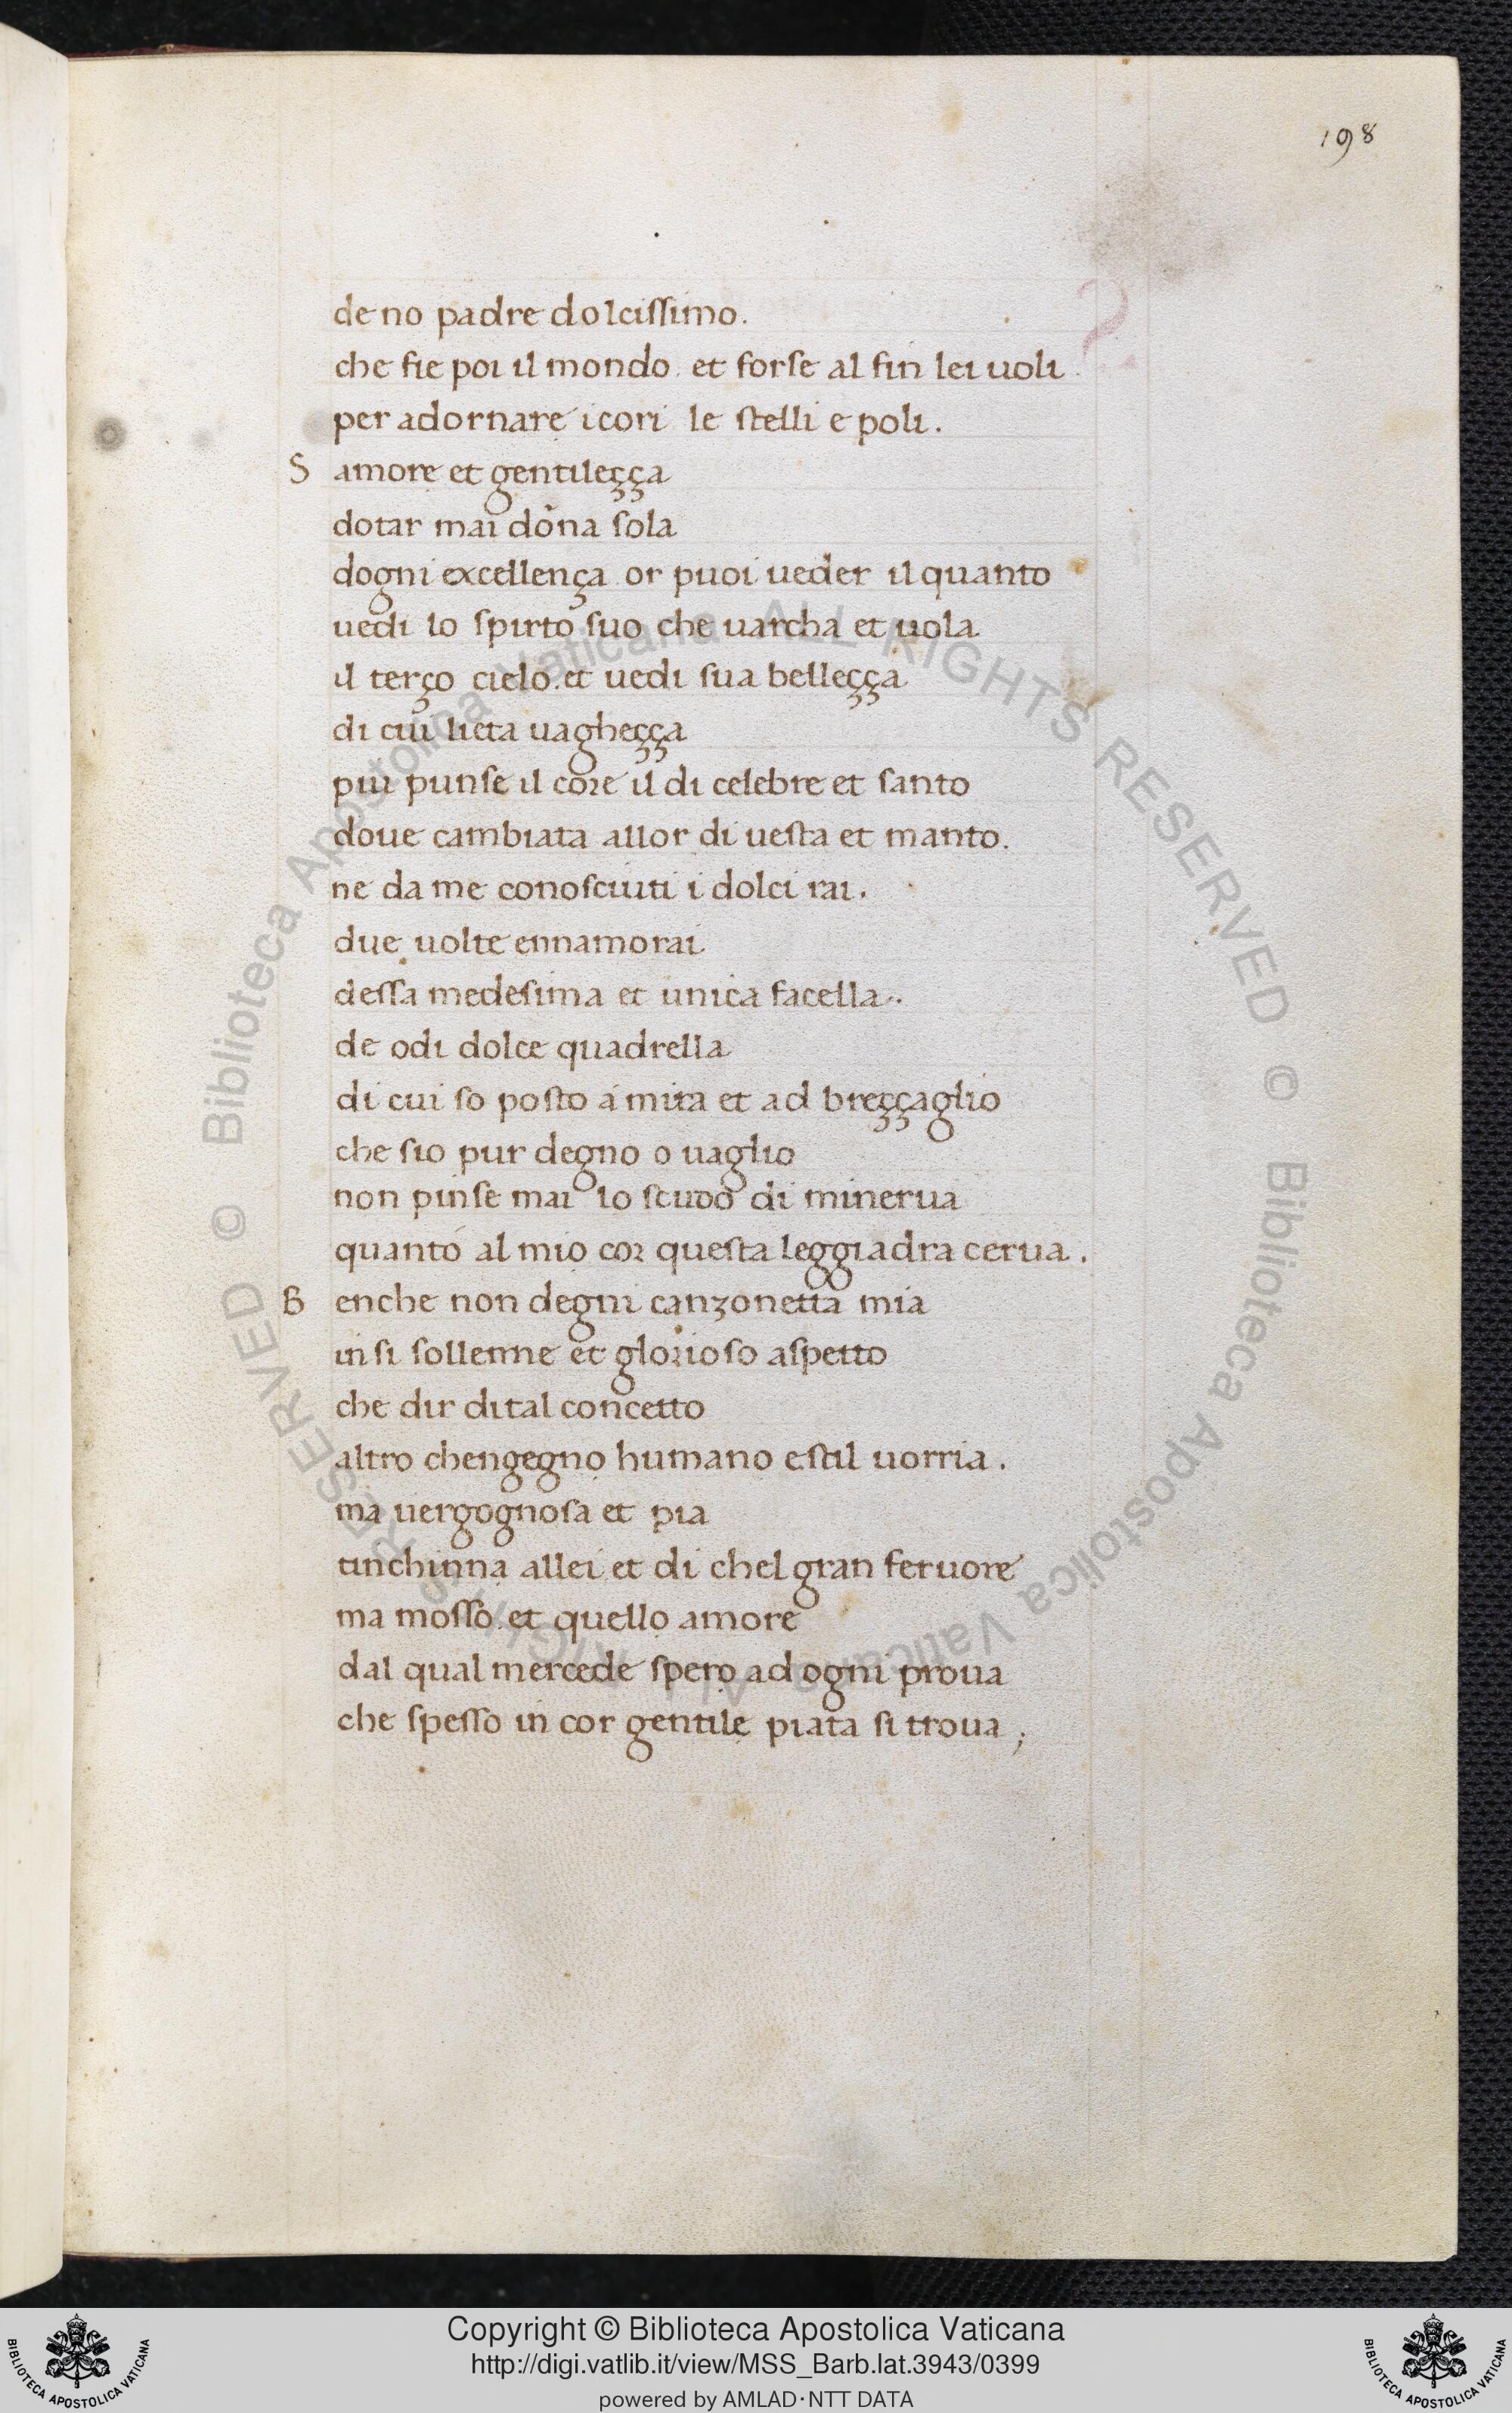 198
de no padre dolcissimo.
che fie poi il mondo. et forse al fin lei uoli.
per adornare i cori le stelli e poli.
S amore et gentileçça
dotar mai dōna sola
dogni excellença. or puoi ueder il quanto
uedi lo spirto suo che uarcha et uola
il terço cielo. et uedi sua belleçça
di cui lieta uagheçça
piu punse il core il di celebre et santo
doue cambiata allor di uesta et manto.
ne da me conosciuti i dolci rai.
due uolte ennamorai
dessa medesima et unica facella.
de odi dolce quadrella
di cui so posto a mira et ad breççaglio
che sio pur degno o uaglio
non pinse mai lo scudo di minerua
quanto al mio cor questa leggiadra cerua.
B enche non degni canzonetta mia
in si sollenne et glorioso aspetto
che dir di tal concetto
altro chengegno humano e stil uorria.
ma uergognosa et pia
tinchinna allei et di chel gran feruore
ma mosso. et quello amore
dal qual mercede spero ad ogni proua
che spesso in cor gentile piata si troua;
Biblioteca Apostolica Vaticana ALL RIGHTS RESERVED ©
Biblioteca Apostolica Vaticana ALL RIGHTS RESERVED ©
BIBLIOTECA APOSTOLICA VATICANA
Copyright © Biblioteca Apostolica Vaticana
http://digi.vatlib.it/view/MSS_Barb.lat.3943/0399
powered by AMLAD·NTT DATA
BIBLIOTECA APOSTOLICA VATICANA